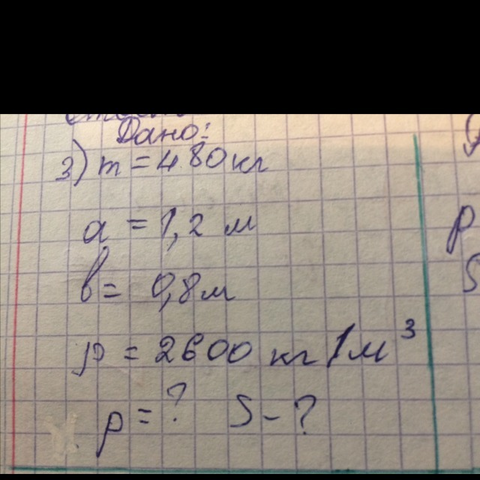 Дано:
3) m = 480 кг
a = 1,2 м
b = 0,8 м
ρ = 2600 кг/м³
p = ? S - ?
p
S